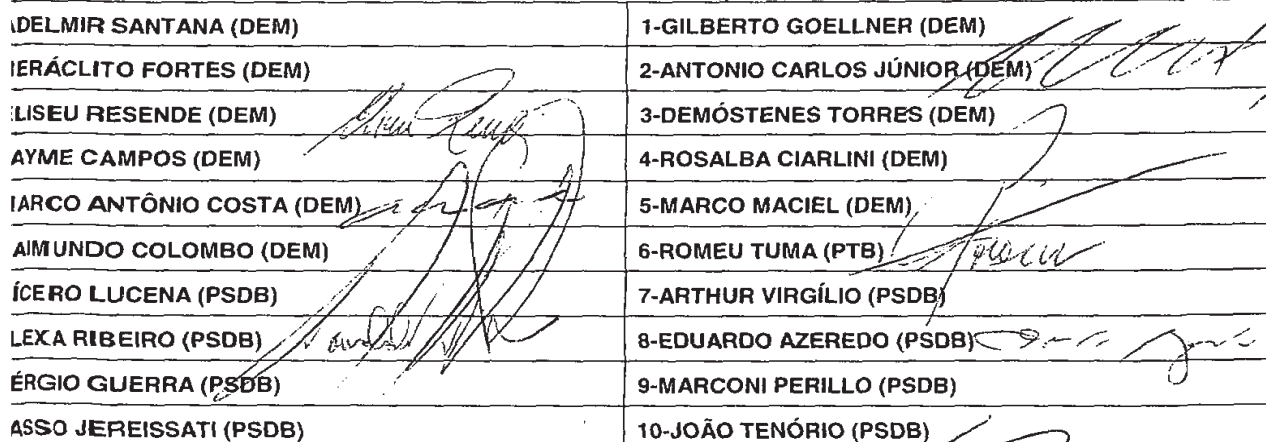 DELMIR SANTANA (DEM) 1-GILBERTO GOELLNER (DEM)
ERÁCLITO FORTES (DEM) 2-ANTONIO CARLOS JÚNIOR (DEM)
LISEU RESENDE (DEM) 3-DEMÓSTENES TORRES (DEM)
AYME CAMPOS (DEM) 4-ROSALBA CIARLINI (DEM)
ARCO ANTÔNIO COSTA (DEM) 5-MARCO MACIEL (DEM)
AIMUNDO COLOMBO (DEM) 6-ROMEU TUMA (PTB)
ÍCERO LUCENA (PSDB) 7-ARTHUR VIRGÍLIO (PSDB)
LEXA RIBEIRO (PSDB) 8-EDUARDO AZEREDO (PSDB)
ÉRGIO GUERRA (PSDB) 9-MARCONI PERILLO (PSDB)
ASSO JEREISSATI (PSDB) 10-JOÃO TENÓRIO (PSDB)